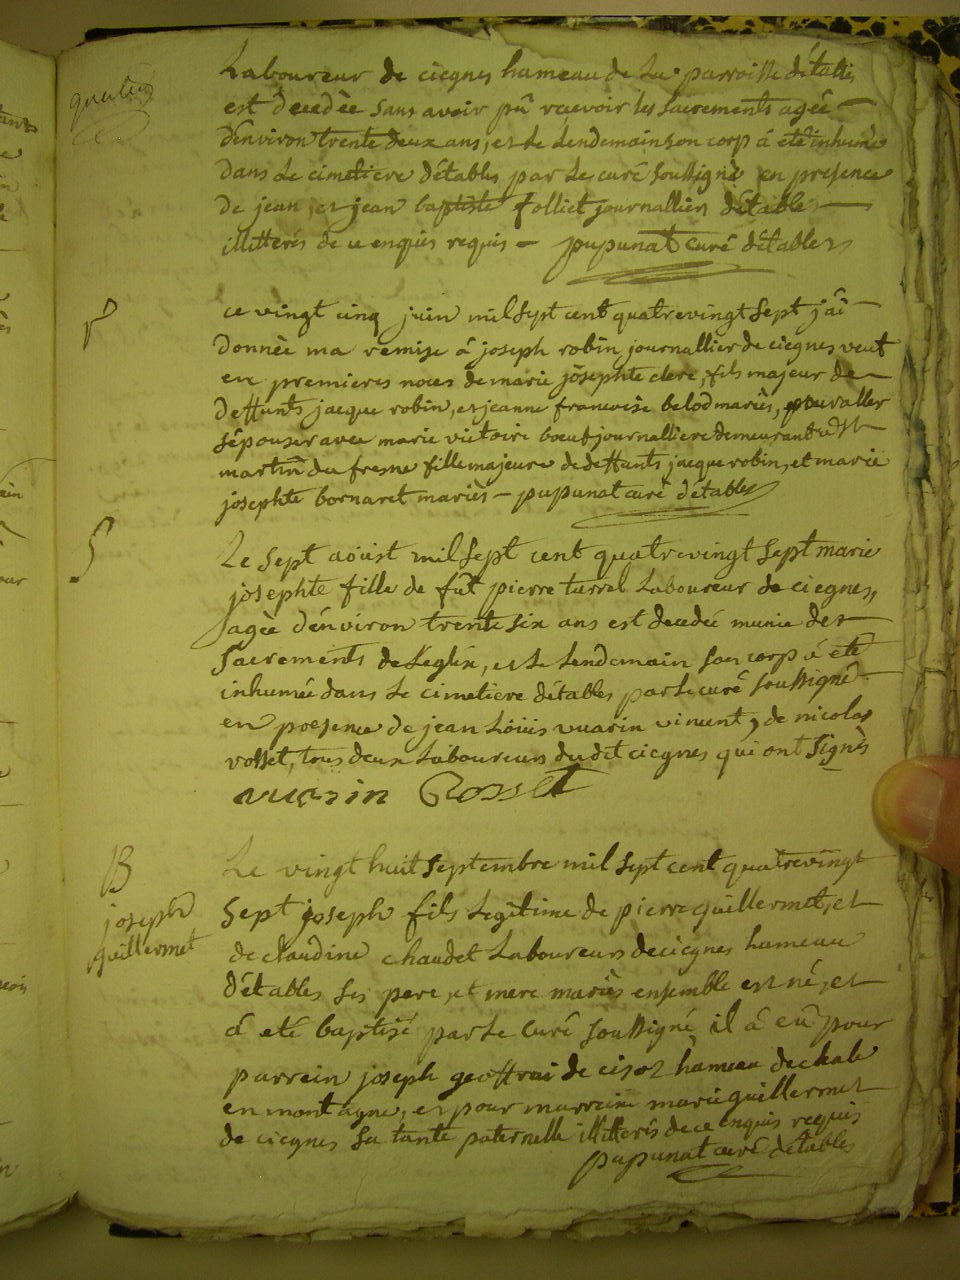 Laboureur de ciegnes hameau de La parroisse détables
est decedée sans avoir pû recevoir les sacrements agée
d'environ trente deux ans, et le lendemain son corp á été inhumé
dans le cimetiere détables par le curé soussigné en presence
de jean, et jean baptiste folliet journalliers détables
illitterés de ce enquis requis - pupunat curé détables
ce vingt cinq juin mil sept cent quatrevingt sept j'ai
donnée ma remise á joseph robin journallier de ciegnes veuf
en premieres noces de marie josephte clerc, fils majeur de
deffunts jacque robin, et jeanne francoise belod mariés, pour aller
s'épouser avec marie victoire boeuf journalliere demeurant á st
martin du fresne fille majeure de deffunts jacque robin, et marie
josephte bornaret mariés - pupunat curé détables
S
Le sept aoúst mil sept cent quatrevingt sept marie
josephte fille de fût pierre turrel Laboureur de ciegnes,
agée d'environ trente six ans est decedée munie des
sacrements de L'eglise, et le lendemain son corp á été
inhumée dans le cimetiere détables par le curé soussigné
en presence de jean Loüis vuarin vincent, de nicolas
rosset, tous deux Laboureurs du dit ciegnes qui ont signés
vuarin Rosset
B
joseph
guillermet
Le vingt huit septembre mil sept cent quatrevingt
sept joseph fils Legitime de pierre guillermet, et
de claudine chaudet Laboureurs de ciegnes hameau
détables ses pere, et mere mariés ensemble est né, et
á eté baptisé par le curé soussigné, il á eû pour
parrein joseph geoffrai de cisoz hameau dechale
en montagne, et pour marreine marie guillermet
de ciegnes sa tante paternelle illitterés de ce enquis requis
pupunat curé détables